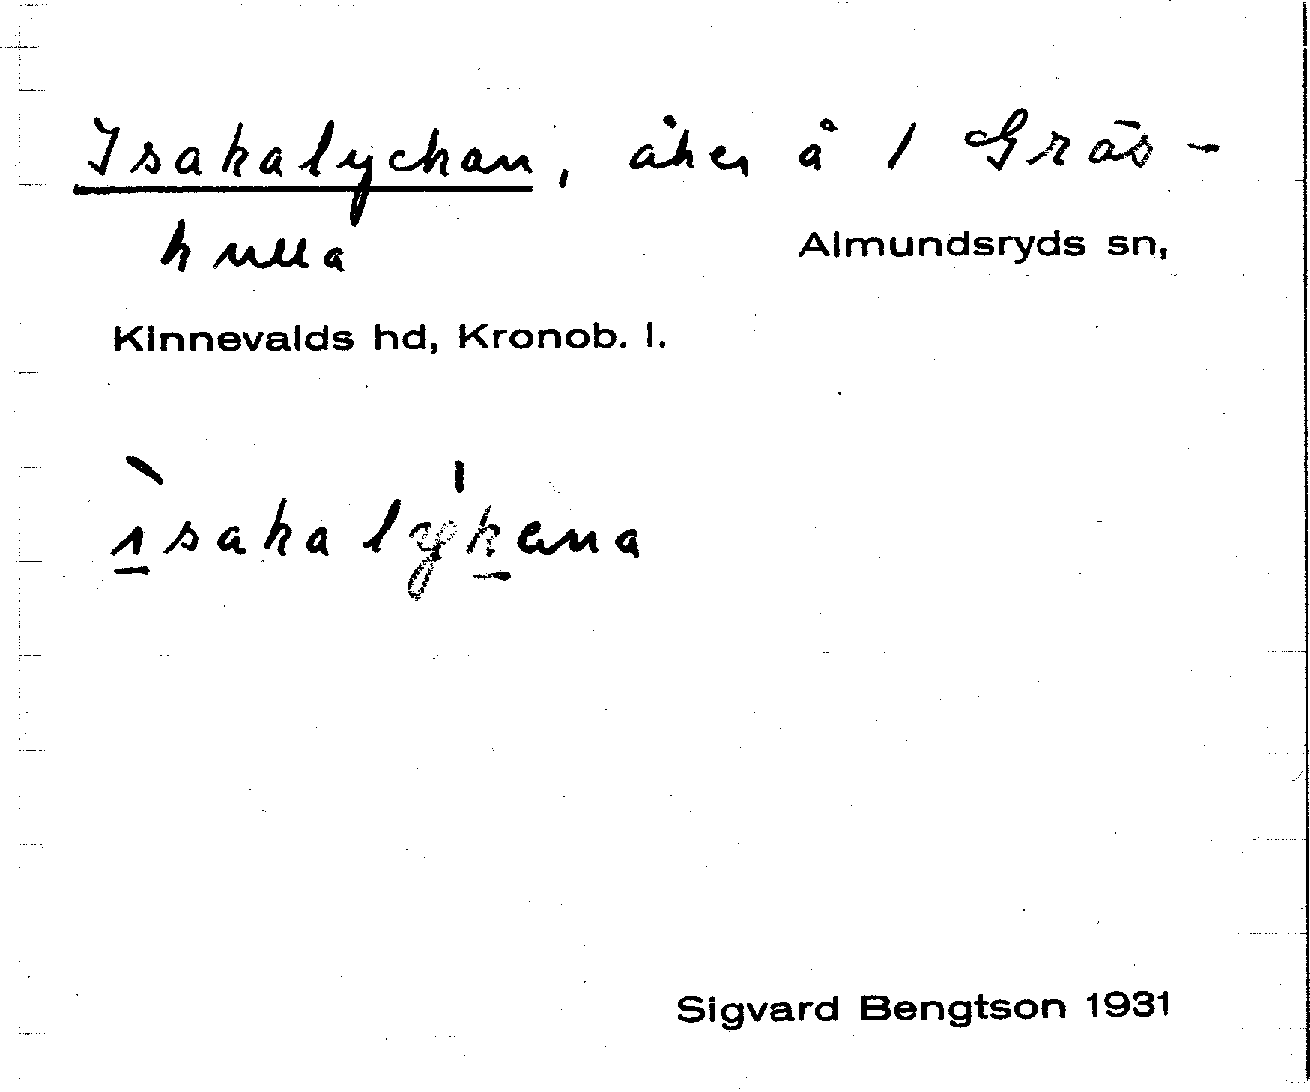 Isakalyckan, åker å 1 Gräs-
hulla
Almundsryds sn,
Kinnevalds hd, Kronob. l.
ì̱sakaly̍ḵena
Sigvard Bengtson 1931